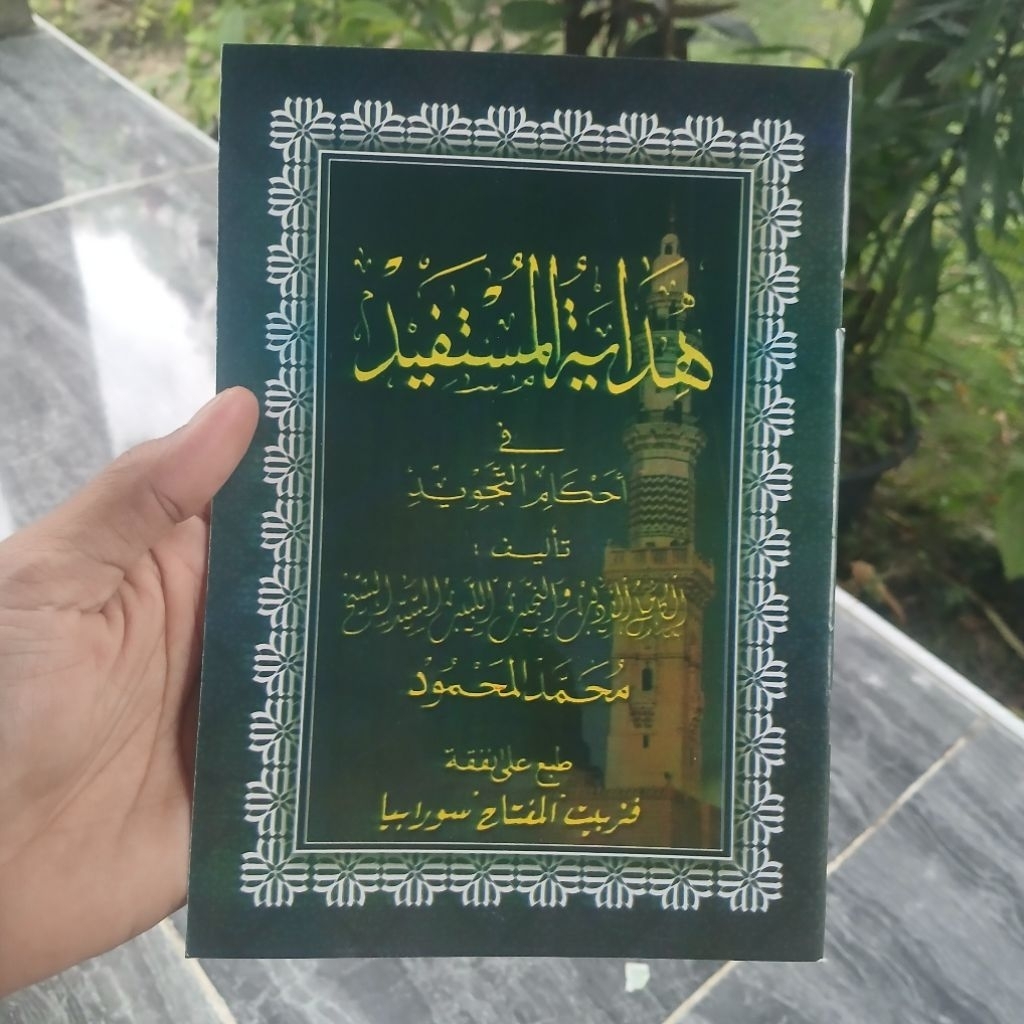 هِدَايَةُ الْمُسْتَفِيْدِ
فِي
أَحْكَامِ التَّجْوِيْدِ
تأليف :
مُحَمَّد الْمَحْمُوْدُ
طبع على نفقة
فنربيت "المفتاح" سورابيا